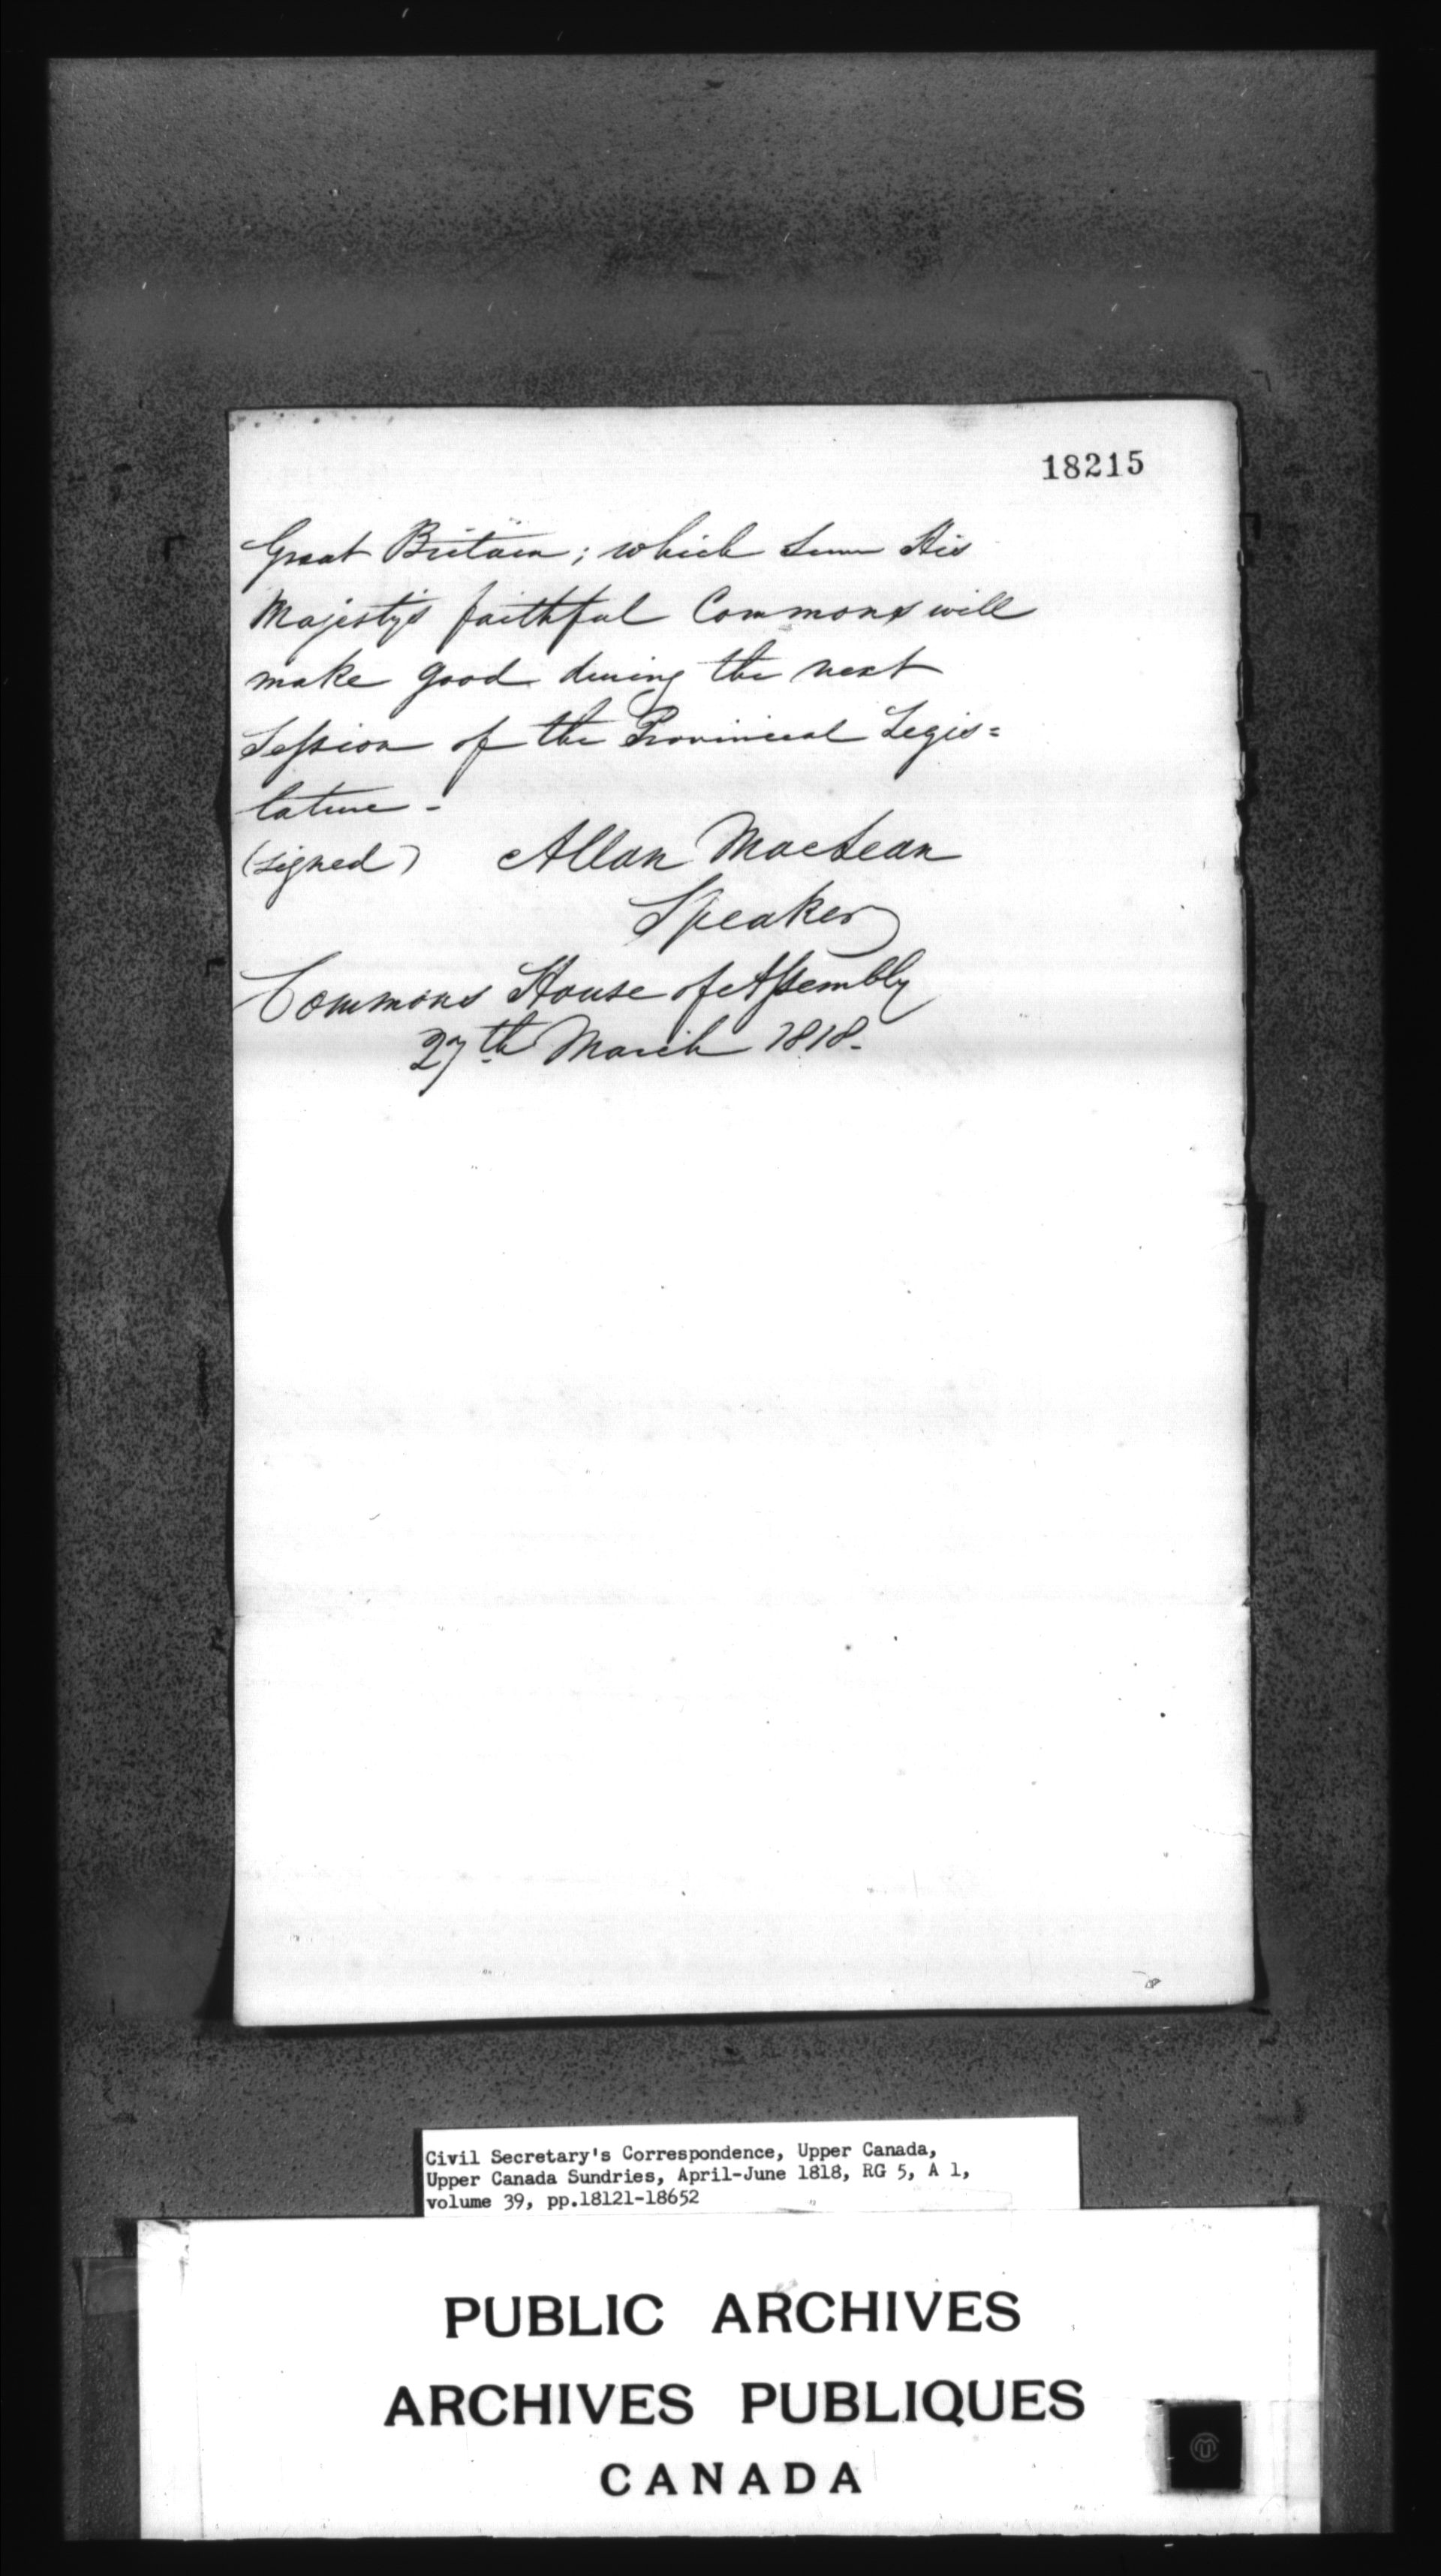 18215
Great Britain; which sum His
Majesty's faithful Commons will
make good during the next
Session of the Provincial Legis=
lature -
(signed) Allan MacLean
Speaker
Commons House of Assembly
27th March 1818.
Civil Secretary's Correspondence, Upper Canada,
Upper Canada Sundries, April-June 1818, RG 5, A 1,
volume 39, pp.18121-18652
PUBLIC ARCHIVES
ARCHIVES PUBLIQUES
CANADA